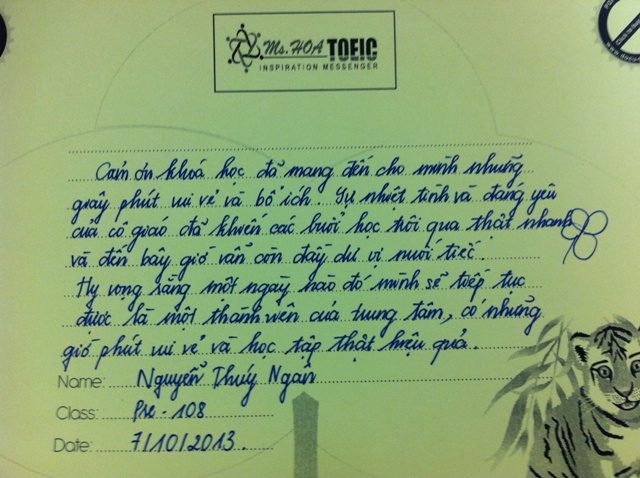 Ms. HOA TOEIC
INSPIRATION MESSENGER
Cảm ơn khoá học đã mang đến cho mình những
giây phút vui vẻ và bổ ích. Sự nhiệt tình và đáng yêu
của cô giáo đã khiến các buổi học trôi qua thật nhanh
và đến bây giờ vẫn còn đầy dư vị nuối tiếc.
Hy vọng rằng một ngày nào đó mình sẽ tiếp tục
được là một thành viên của trung tâm, có những
giờ phút vui vẻ và học tập thật hiệu quả.
Name: Nguyễn Thuý Ngân
Class: Pre - 108
Date: 7/10/2013.